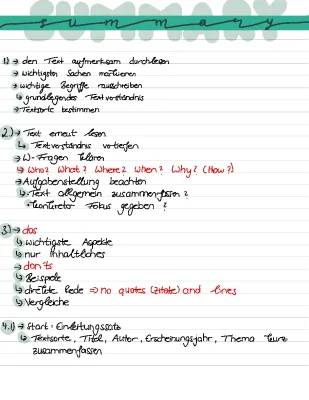 SUMMARY
summary
1) → den Text aufmerksam durchlesen
→ wichtigsten Sachen markieren
→ wichtige Begriffe rausschreiben
↳ grundlegendes Textverständnis
→ Textsorte bestimmen
2) → Text erneut lesen
↳ Textverständnis vertiefen
→ W-Fragen klären
↳ Who? What? Where? When? Why? (How?)
→ Aufgabenstellung beachten
↳ Text allgemein zusammenfassen?
↳ konkreter Fokus gegeben?
3) → dos
↳ wichtigste Aspekte
↳ nur Inhaltliches
→ don'ts
↳ Beispiele
↳ direkte Rede ⇒ no quotes (Zitate) and lines
↳ Vergleiche
4.1) → Start: Einleitungssatz
↳ Textsorte, Titel, Autor, Erscheinungsjahr, Thema kurz
zusammenfassen